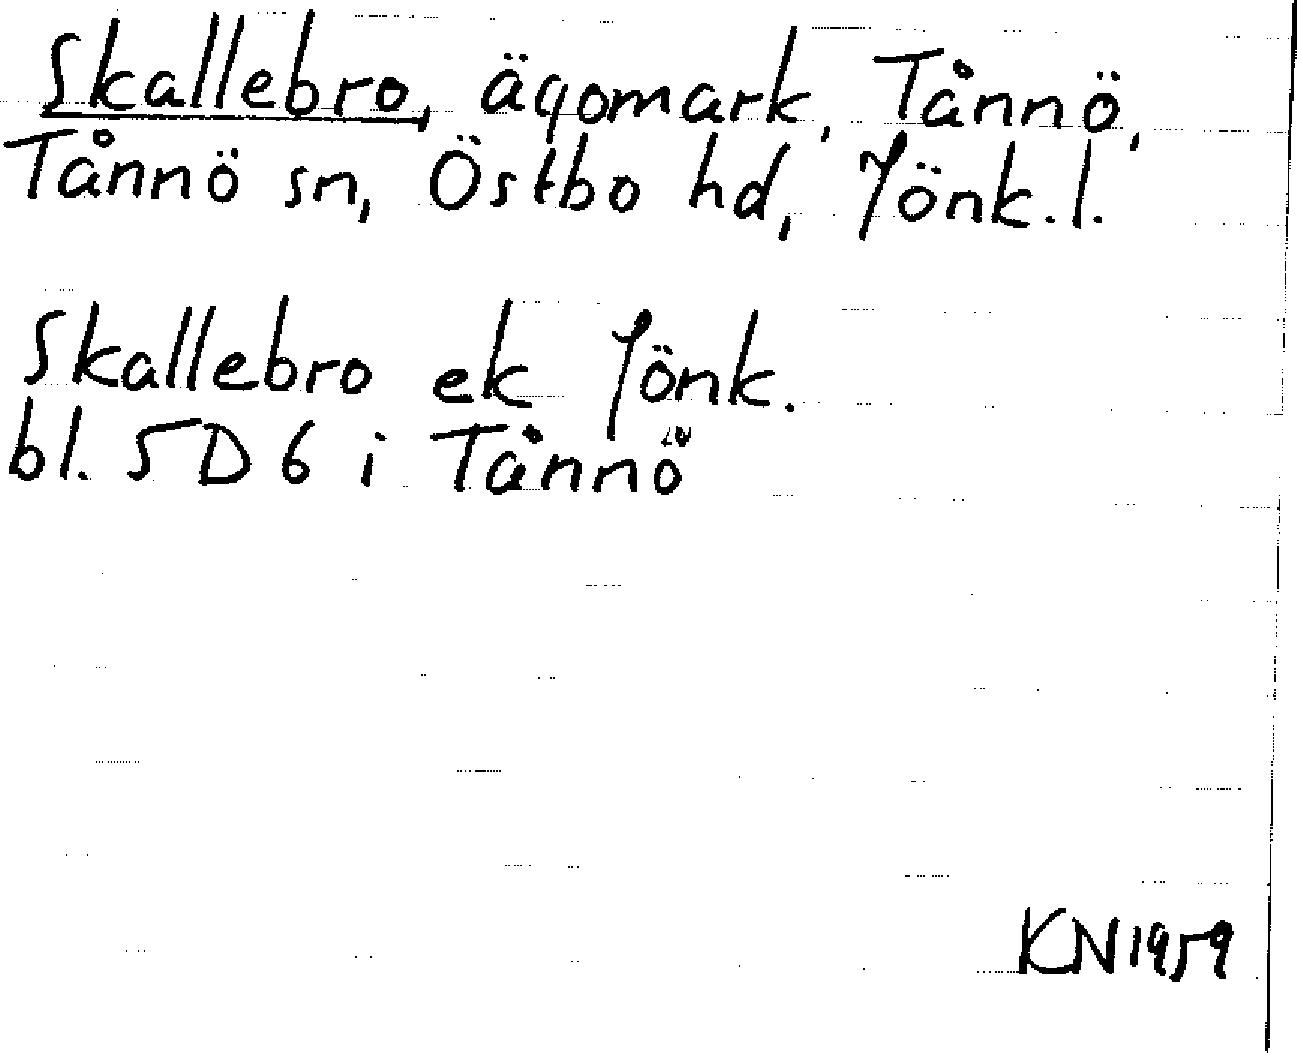 Skallebro, ägomark, Tånnö,
Tånnö sn, Östbo hd, Jönk. l.
Skallebro ek Jönk.
bl. 5D6 i Tånnö
KN1959